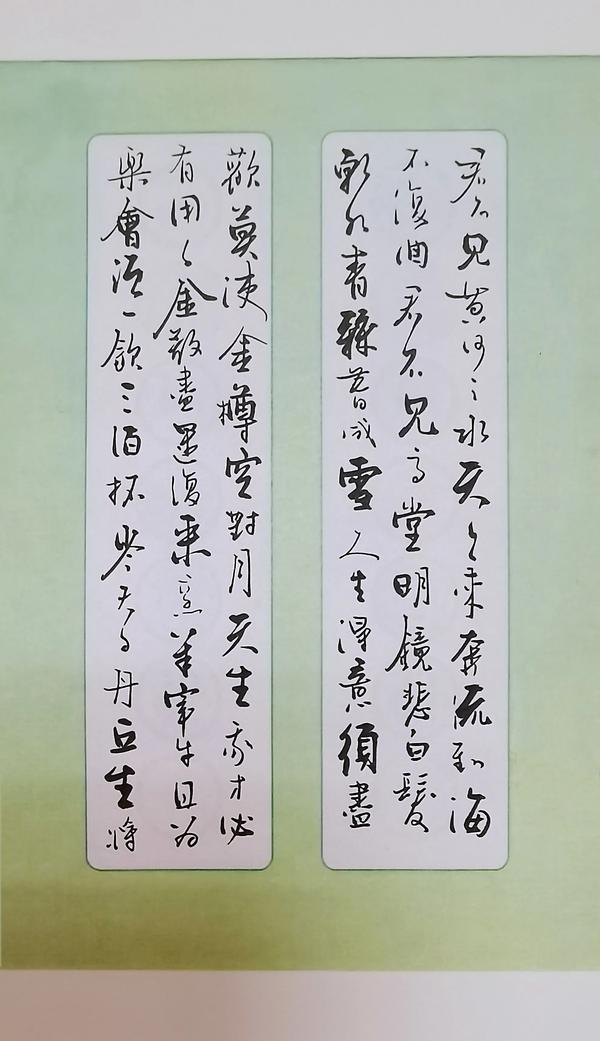 君不見黃河之水天上來奔流到海
不復回君不見高堂明鏡悲白髮
朝如青絲暮成雪人生得意須盡
歡莫使金樽空對月天生我才必
有用千金散盡還復來烹羊宰牛且為
樂會須一飲三百杯岑夫子丹丘生將